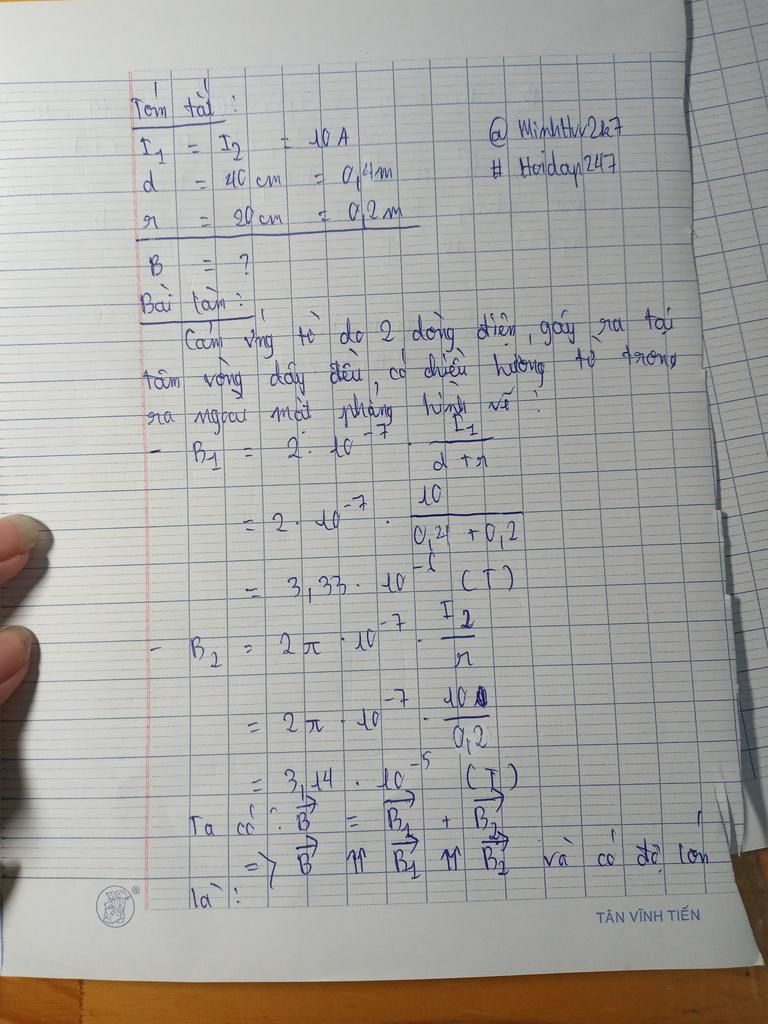 Tóm tắt :
I₁ = I₂ = 10 A
@ MinhHvv2k7
d = 40 cm = 0,4 m
# Hoidap247
r = 20 cm = 0,2 m
B = ?
Bài làm :
Cảm ứng từ do 2 dòng điện gây ra tại
tâm vòng dây đều có chiều hướng từ trong
ra ngoài mặt phẳng hình vẽ :
- B₁ = 2 . 10⁻⁷ . I₁ / (d + r)
= 2 . 10⁻⁷ . 10 / (0,4 + 0,2)
= 3,33 . 10⁻⁶ (T)
- B₂ = 2π . 10⁻⁷ . I₂ / r
= 2π . 10⁻⁷ . 10 / 0,2
= 3,14 . 10⁻⁵ (T)
Ta có : B⃗ = B₁⃗ + B₂⃗
=> B⃗ ⇈ B₁⃗ ⇈ B₂⃗ và có độ lớn
là :
TÂN VĨNH TIẾN